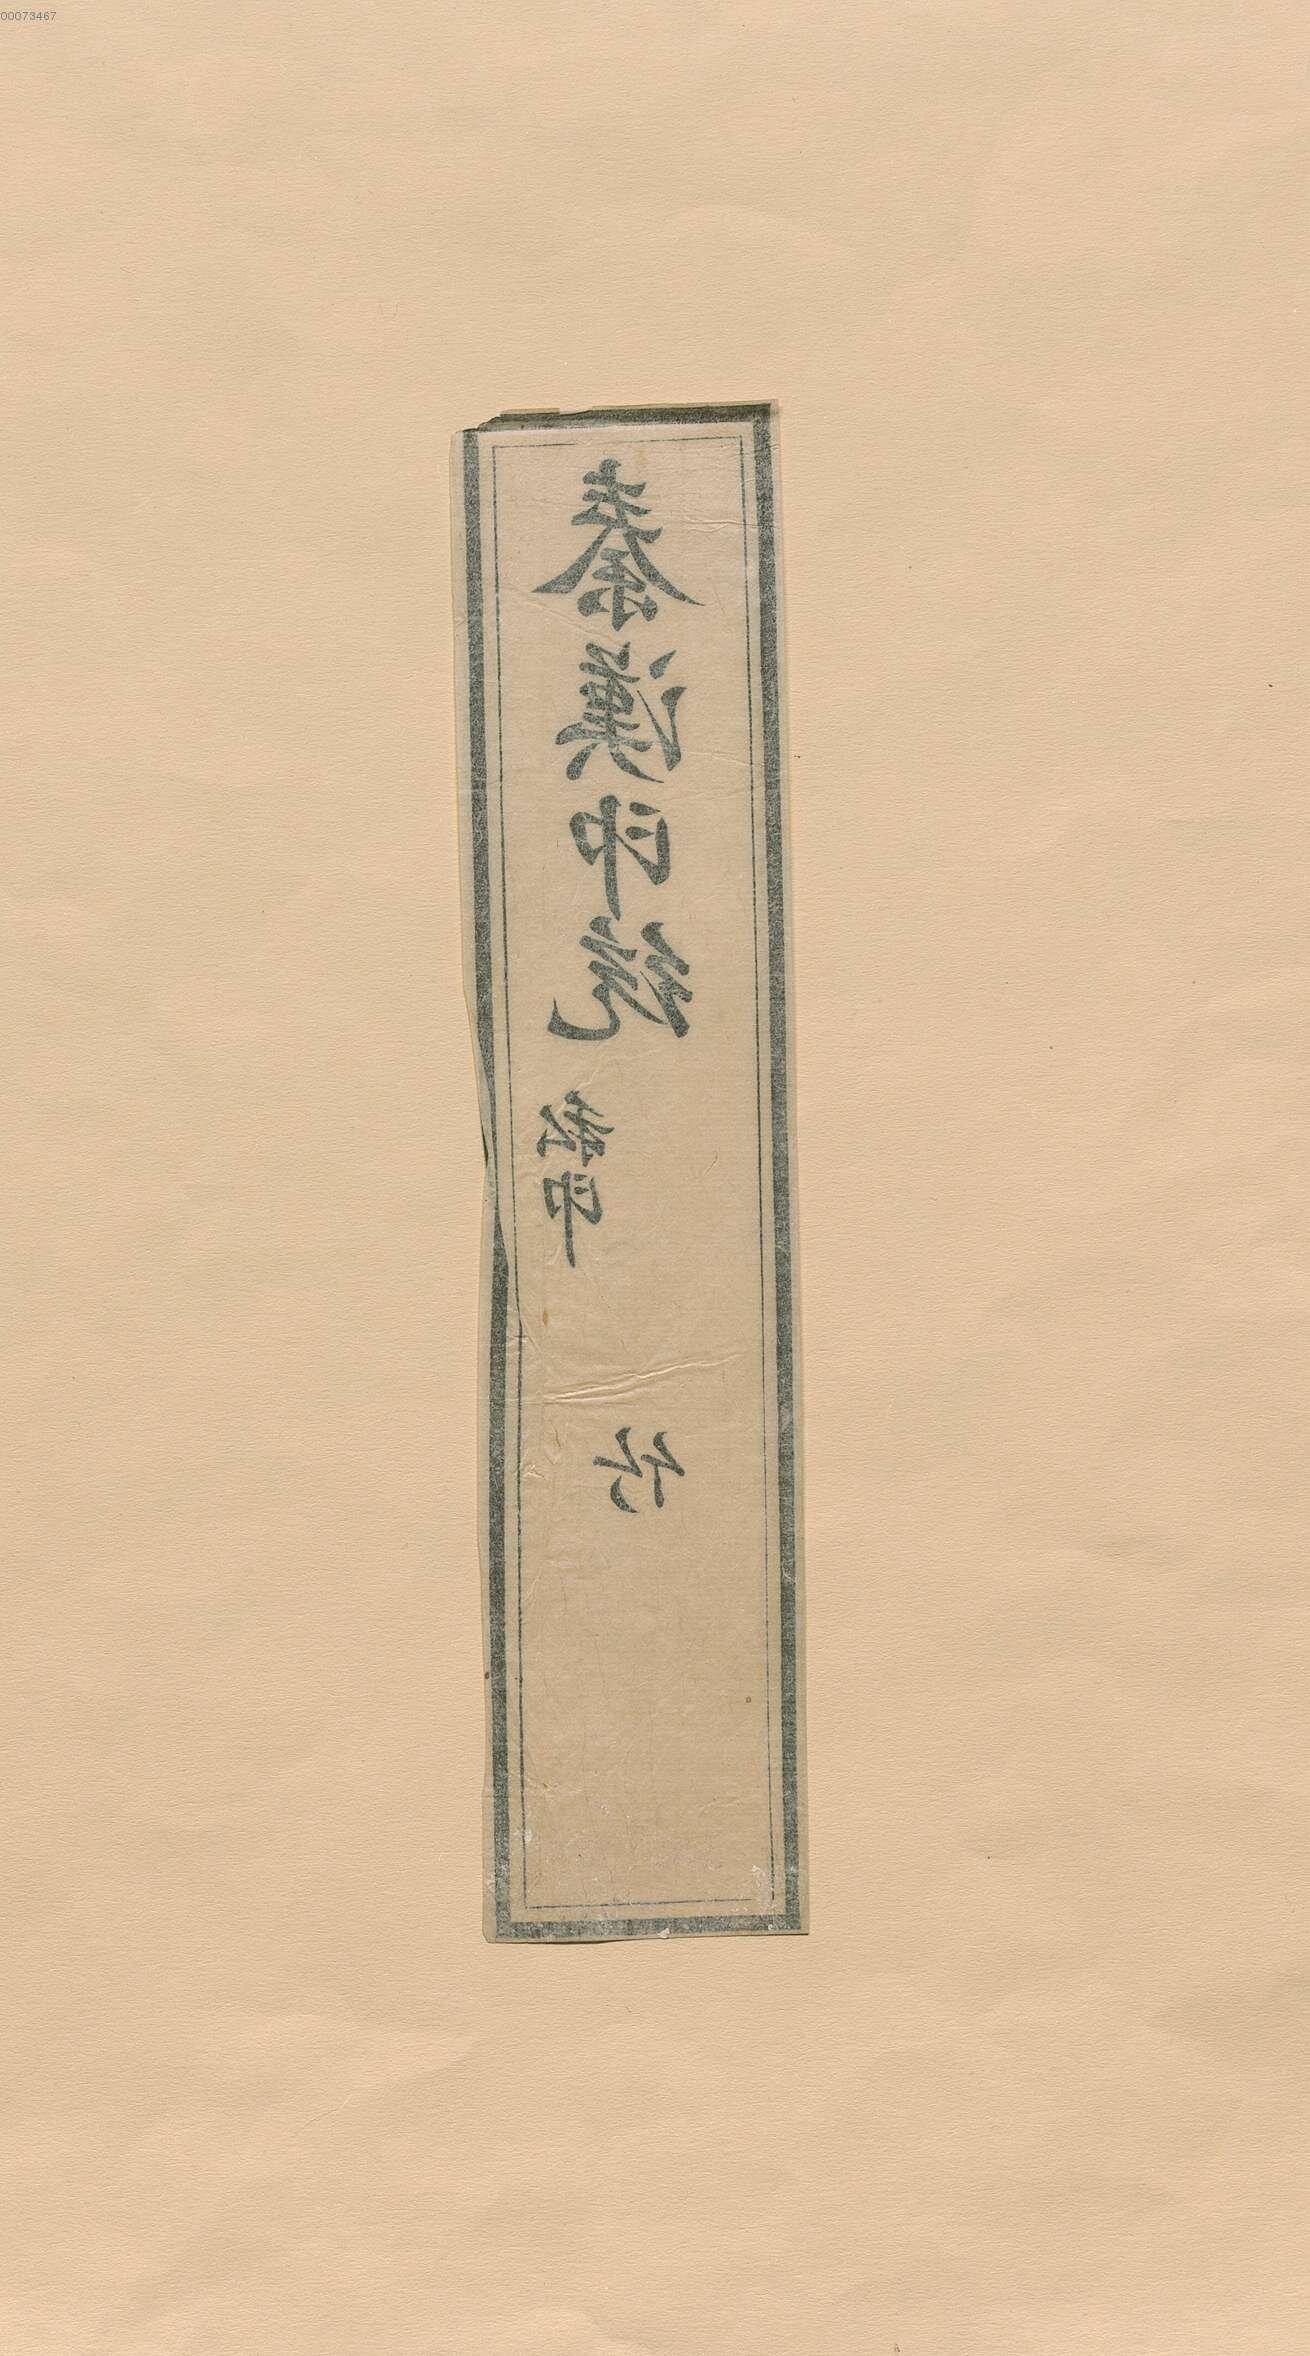 00073467
秦漢印統
私印
竹